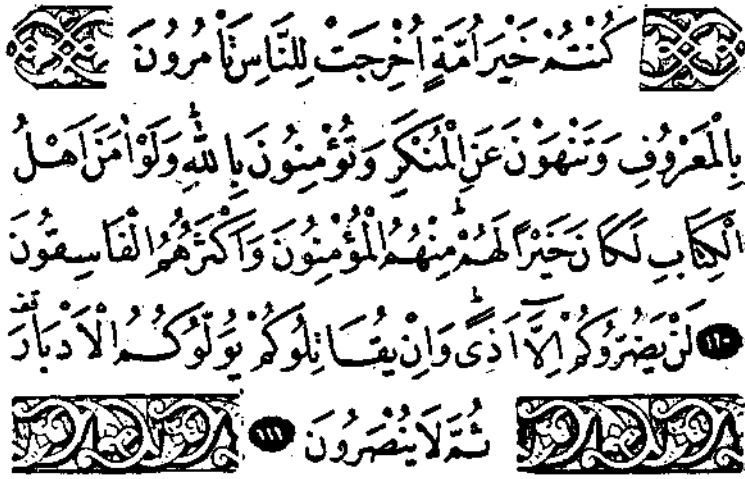 كُنْتُمْ خَيْرَ اُمَّةٍ اُخْرِجَتْ لِلنَّاسِ تَأْمُرُونَ
بِالْمَعْرُوفِ وَتَنْهَوْنَ عَنِ الْمُنْكَرِ وَتُؤْمِنُونَ بِاللّٰهِۜ وَلَوْ اٰمَنَ اَهْلُ
الْكِتَابِ لَكَانَ خَيْرًا لَهُمْۜ مِنْهُمُ الْمُؤْمِنُونَ وَاَكْثَرُهُمُ الْفَاسِقُونَ
﴿١١٠﴾ لَنْ يَضُرُّوكُمْ اِلَّٓا اَذًىۜ وَاِنْ يُقَاتِلُوكُمْ يُوَلُّوكُمُ الْاَدْبَارَ۠
ثُمَّ لَا يُنْصَرُونَ ﴿١١١﴾